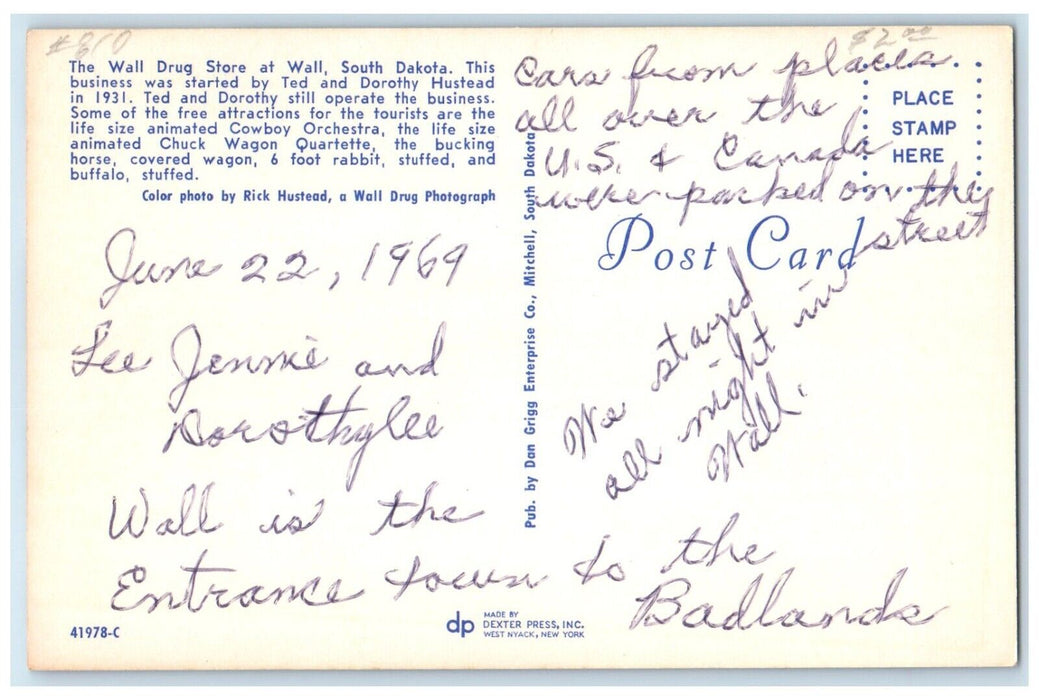 #810
$2.00
The Wall Drug Store at Wall, South Dakota. This
business was started by Ted and Dorothy Hustead
in 1931. Ted and Dorothy still operate the business.
Some of the free attractions for the tourists are the
life size animated Cowboy Orchestra, the life size
animated Chuck Wagon Quartette, the bucking
horse, covered wagon, 6 foot rabbit, stuffed, and
buffalo, stuffed.
Color photo by Rick Hustead, a Wall Drug Photograph
June 22, 1969
Lee Jennie and
Dorothylee
Wall is the
Entrance town to the
Badlands
Pub. by Dan Grigg Enterprise Co., Mitchell, South Dakota
Cars from places
all over the
U.S. & Canada
were parked on the
street
PLACE
STAMP
HERE
Post Card
We stayed
all night in
Wall.
41978-C
dp
MADE BY
DEXTER PRESS, INC.
WEST NYACK, NEW YORK